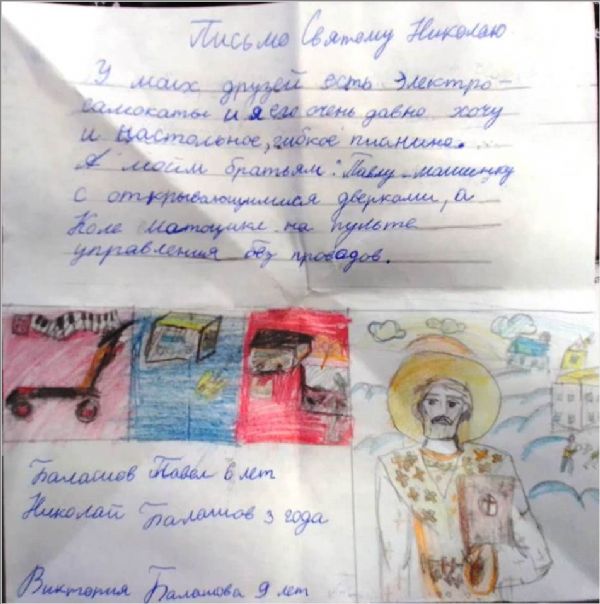 Письмо Святому Николаю
У моих друзей есть электро-
самокаты и я его очень давно хочу
и настольное, гибкое пианино.
А моим братьям: Павлу - машинку
с открывающимися дверками, а
Коле матоцикл на пульте
управления без проводов.
Балашов Павел 6 лет
Николай Балашов 3 года
Виктория Балашова 9 лет